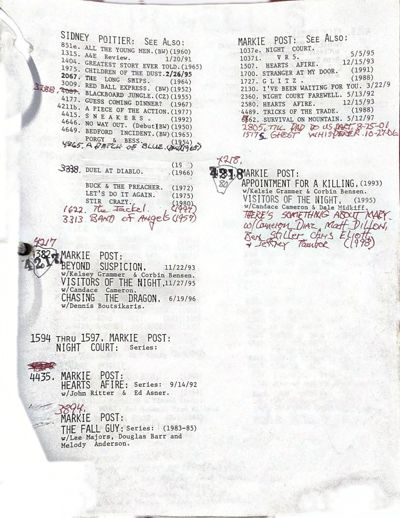 SIDNEY POITIER: See Also:
851e. ALL THE YOUNG MEN.(BW)(1960)
1315. A&E Review. 1/20/91
1404. GREATEST STORY EVER TOLD.(1965)
1975. CHILDREN OF THE DUST.2/26/95
2067. THE LONG SHIPS. (1964)
3009. RED BALL EXPRESS.(BW)(1952)
3188. BLACKBOARD JUNGLE.(BW)(1955)
4177. GUESS COMING DINNER? (1967)
4211b. A PIECE OF THE ACTION.(1977)
4415. SNEAKERS. (1991)
4646. NO WAY OUT. (Debut)(BW)(1950)
4649. BEDFORD INCIDENT.(BW)(1965)
PORGY & BESS. (1954)
4965. A PATCH OF BLUE.
3338. DUEL AT DIABLO. (1966)
BUCK & THE PREACHER. (1972)
LET'S DO IT AGAIN. (1975)
STIR CRAZY. (1980)
1622. The Jackel. (1997)
3313 BAND of Angels (1957)
4217
MARKIE POST:
BEYOND SUSPICION. 11/22/93
w/Kelsey Grammer & Corbin Bensen.
VISITORS OF THE NIGHT.11/27/95
w/Candace Cameron.
CHASING THE DRAGON. 6/19/96
w/Dennis Boutsikaris.
1594 THRU 1597. MARKIE POST:
NIGHT COURT: Series:
4435. MARKIE POST:
HEARTS AFIRE: Series: 9/14/92
w/John Ritter & Ed Asner.
3894.
MARKIE POST:
THE FALL GUY: Series: (1983-85)
w/Lee Majors, Douglas Barr and
Melody Anderson.
MARKIE POST: See Also:
1037e. NIGHT COURT.
1037i. VR5. 5/5/95
1507. HEARTS AFIRE. 12/15/93
1700. STRANGER AT MY DOOR. (1991)
1727. GLITZ. (1988)
2130. I'VE BEEN WAITING FOR YOU. 3/22/9
2360. NIGHT COURT FAREWELL. 5/13/92
2580. HEARTS AFIRE. 12/15/93
4489. TRICKS OF THE TRADE. (1988)
SURVIVAL ON MOUNTAIN. 5/12/97
2805. TILL DAD DO US PART. 8-25-01
GHOST WHISPERER 10-27-06
4218.
4218 MARKIE POST:
APPOINTMENT FOR A KILLING.(1993)
w/Kelsie Grammer & Corbin Bensen.
VISITORS OF THE NIGHT. (1995)
w/Candace Cameron & Dale Midkiff.
THERE'S SOMETHING ABOUT MARY.
w/Cameron Diaz, Matt Dillon,
Ben Stiller, Chris Elliott
& Jeffrey Tambor (1998)